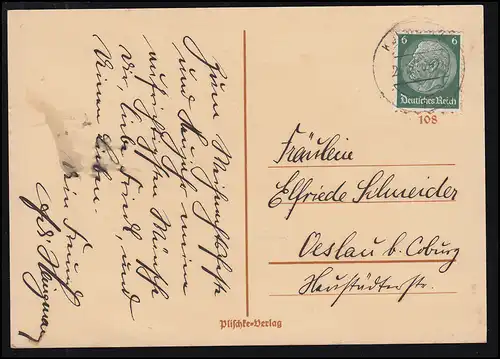 Zum Weihnachtsfeste
und Neujahr meine
aufrichtigsten Wünsche
Dir, liebe Friedl, und
Deinen Lieben.
Dein Freund
6 6
Deutsches Reich
108
Fräulein
Elfriede Schneider
Oeslau b. Coburg
Neustädterstr.
Plischke-Verlag